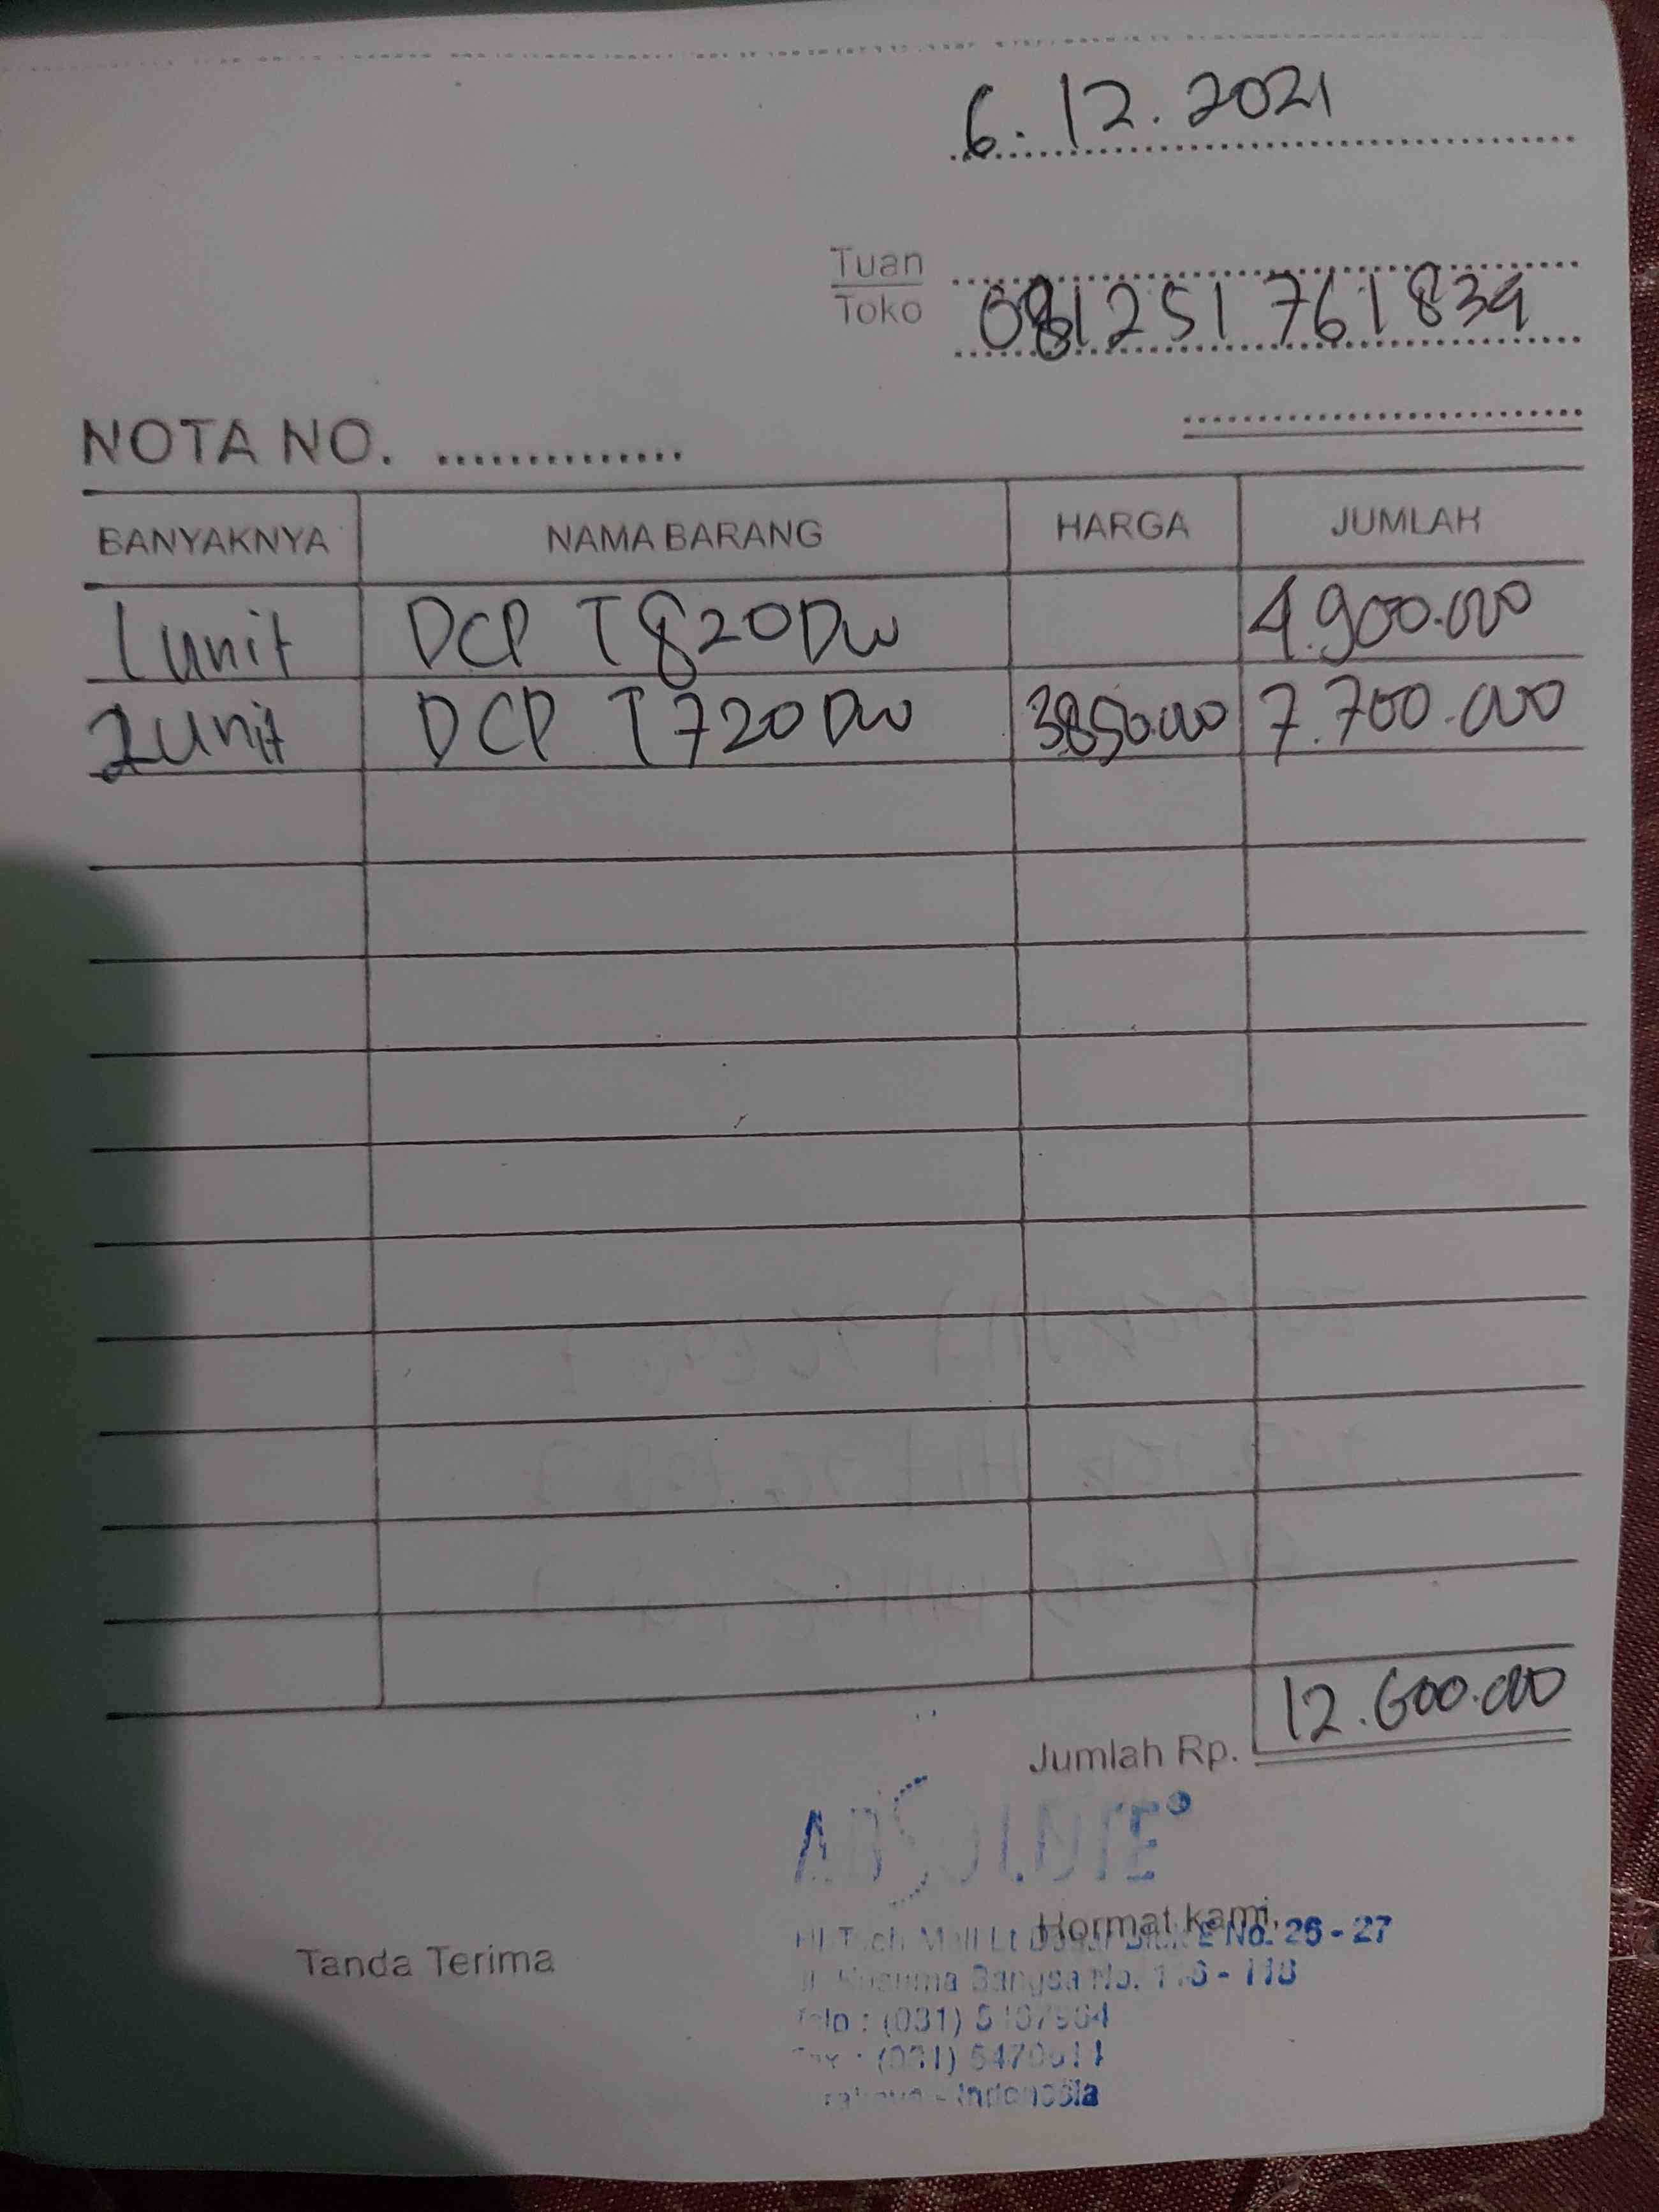 6.12.2021
Tuan
Toko
081251761839
NOTA NO. ..............
BANYAKNYA NAMA BARANG HARGA JUMLAH
1 unit DCP T820DW 4.900.000
2 Unit DCP T720DW 3850.000 7.700.000
Jumlah Rp. 12.600.000
ABSOLUTE
Tanda Terima
Hormat kami,
No. 26 - 27
Bangsa No. 116 - 118
Telp : (031)
Fax : (031)
Surabaya - Indonesia